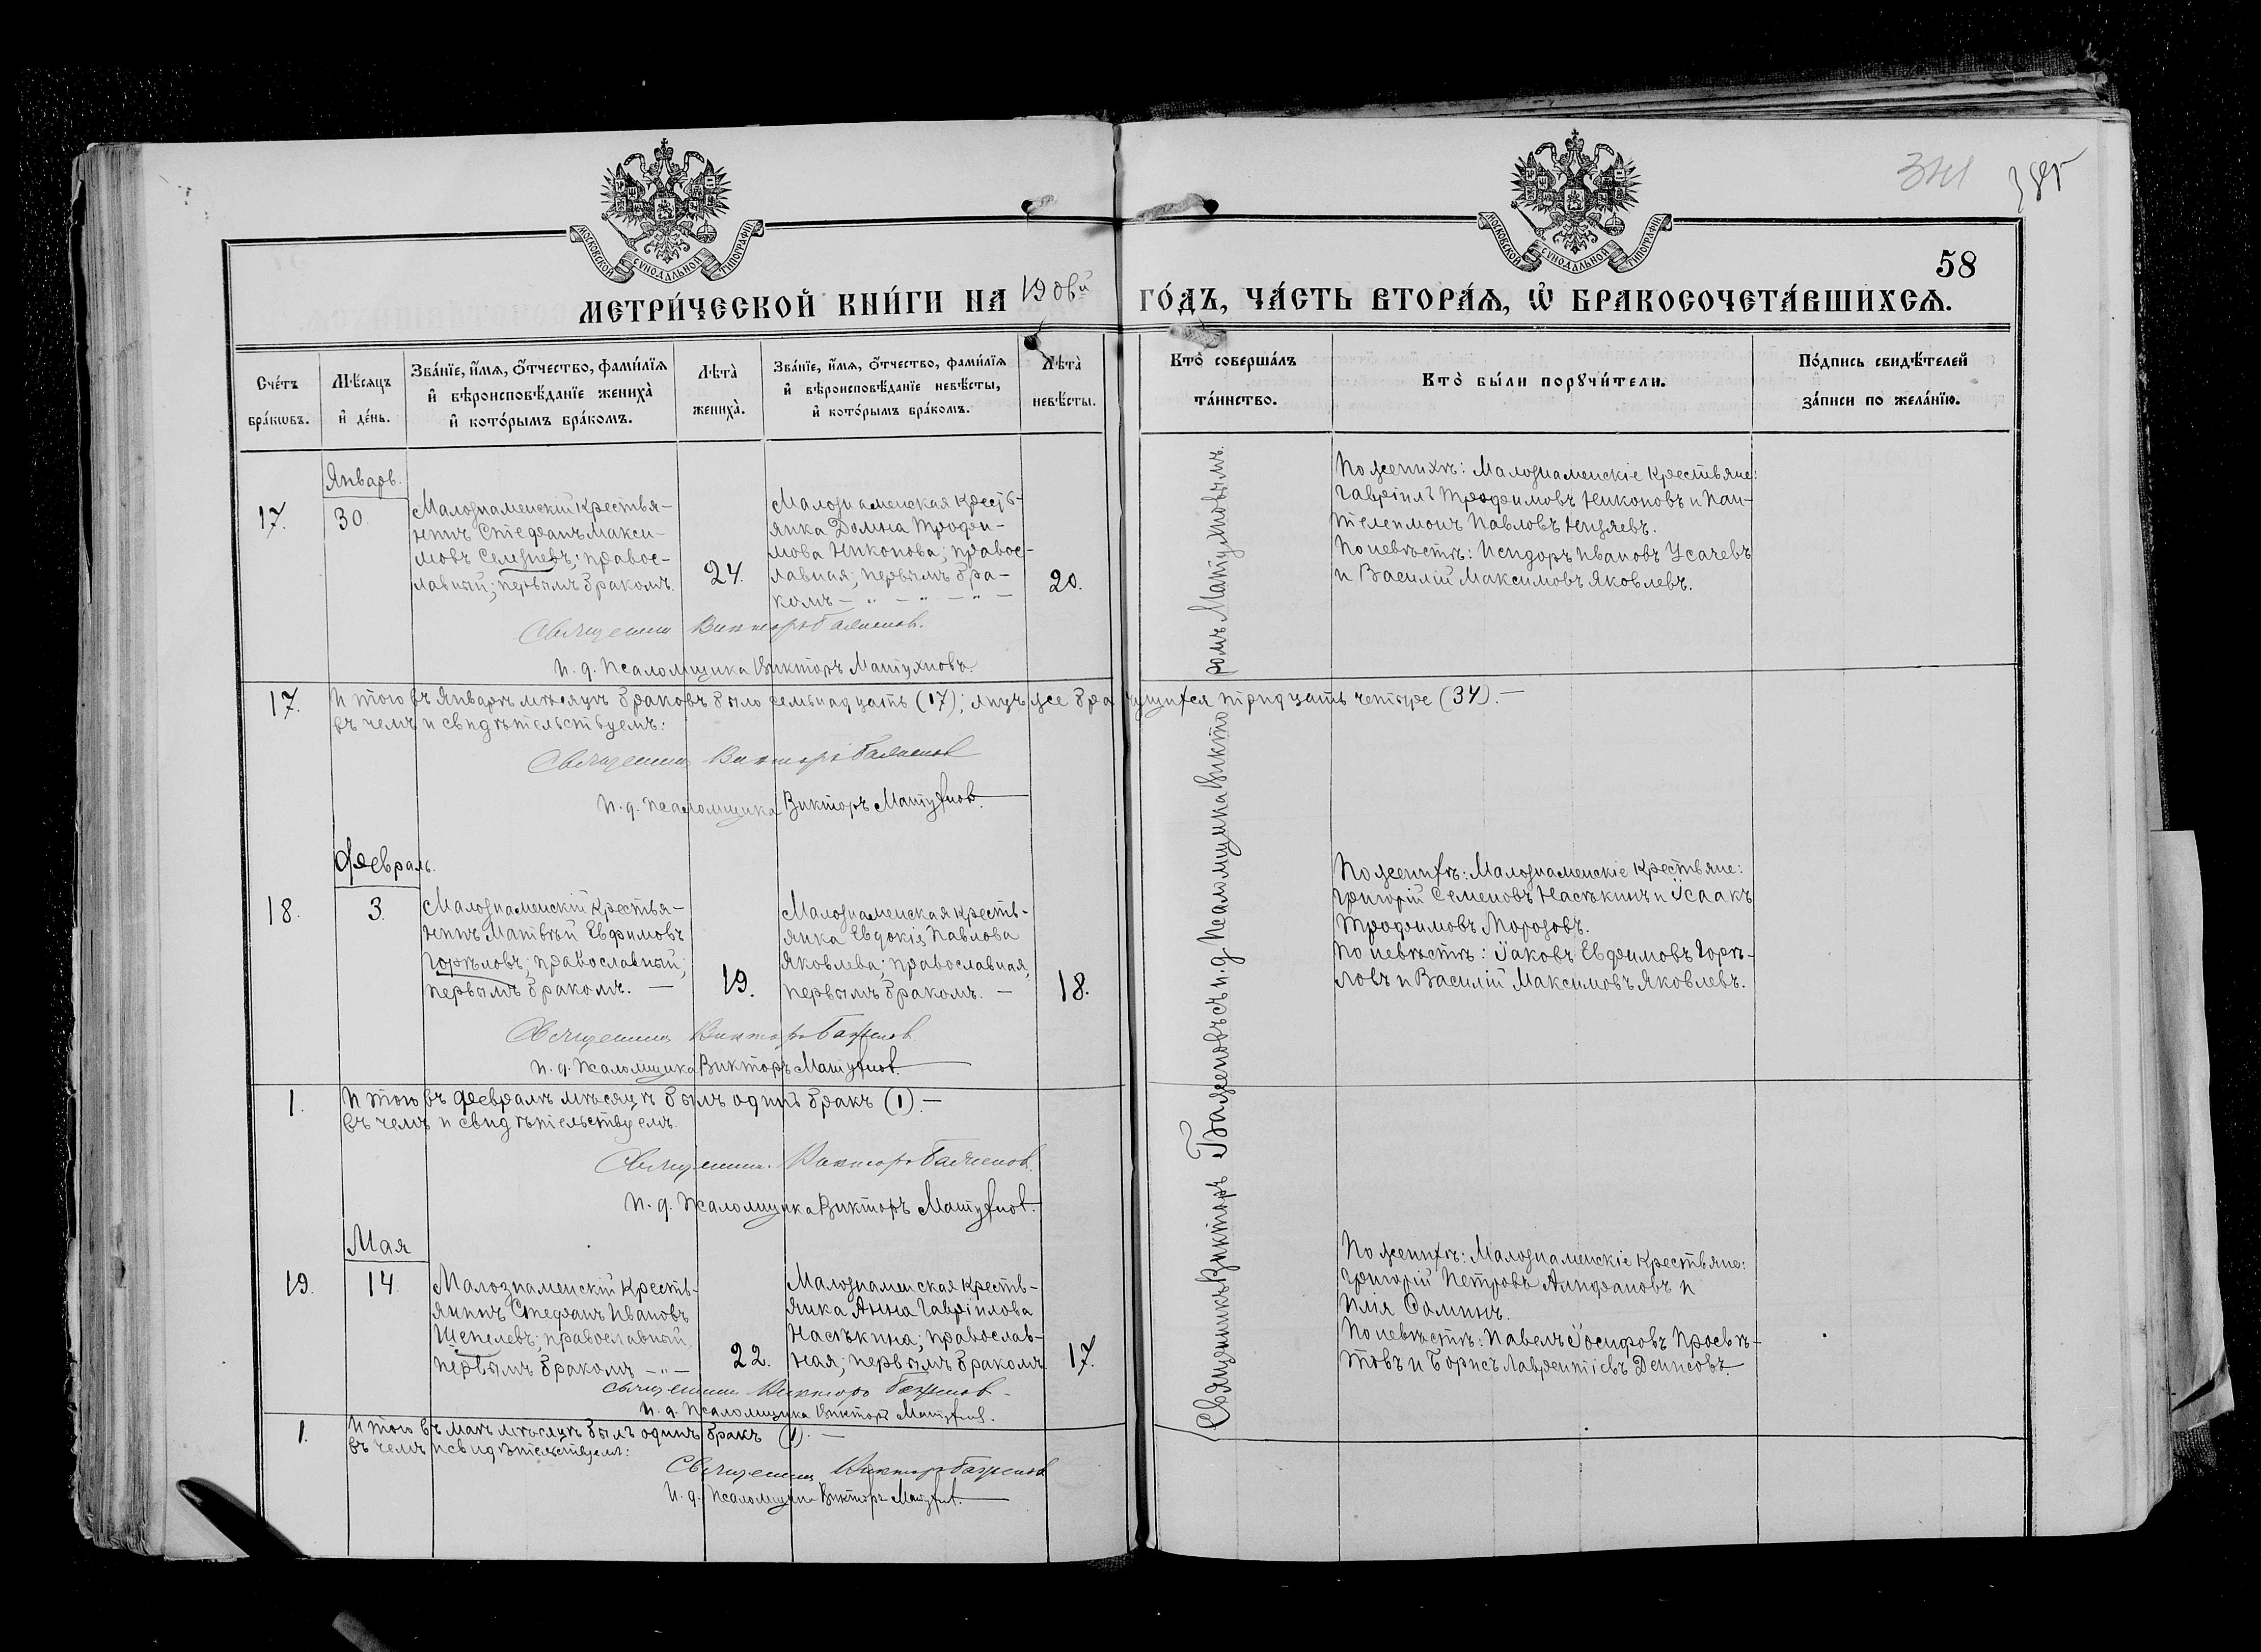 МОСКОВСКОЙ СУНОДАЛЬНОЙ ТИПОГРАФІИ
МОСКОВСКОЙ СУНОДАЛЬНОЙ ТИПОГРАФІИ
58
МЕТРИ́ЧЕСКОЙ КНИ́ГИ НА
ГО́ДЪ, ЧА́СТЬ ВТОРА́Ѧ, Ѡ҆ БРАКОСОЧЕТА́ВШИХСѦ.
Сче́тъ бра́кѡвъ.
Мѣ́сяцъ и҆ де́нь.
Зва́нїе, и҆́мѧ, ѻ҆́тчество, фами́лїѧ и҆ вѣроисповѣ́данїе жениха̀ и҆ кото́рымъ бра́комъ.
Лѣта̀ жениха̀.
Зва́нїе, и҆́мѧ, ѻ҆́тчество, фами́лїѧ и҆ вѣроисповѣ́данїе невѣ́сты, и҆ кото́рымъ бра́комъ.
Лѣта̀ невѣ́сты.
Кто̀ соверша́лъ та́инство.
Кто̀ бы́ли порꙋчи́тели.
По́дпись свидѣ́телей за́писи по жела́нїю.
Январь.
17.
30.
Малознаменскій крестья-
нинъ Стефанъ Макси-
мовъ Селезневъ; право-
славный; первымъ бракомъ.
24.
Малознаменская кресть-
янка Домна Трофи-
мова Никонова; правос-
лавная; первымъ бра-
комъ — " — " — " —
20.
По женихѣ: Малознаменскіе крестьяне:
Гавріилъ Трофимовъ Никоновъ и Пан-
телеимонъ Павловъ
По невѣстѣ: Исидоръ Ивановъ Усачевъ
и Василій Максимовъ Яковлевъ.
Священникъ Викторъ Баженовъ.
И. д. Псаломщика Викторъ Матухновъ
17.
Итого въ Январѣ мѣсяцѣ браковъ было семьнадцать (17); лицъ же брачущихся тридцать четыре (34). —
въ чемъ и свидѣтельствуемъ:
Священникъ Викторъ Баженовъ
И. д. Псаломщика Викторъ Матухновъ.
Февраль.
18.
3.
Малознаменскій крестья-
нинъ Матвѣй Евфимовъ
Горѣловъ; православный;
первымъ бракомъ. —
19.
Малознаменская кресть-
янка Евдокія Павлова
Яковлева; православная,
первымъ бракомъ. —
18.
По женихѣ: Малознаменскіе крестьяне:
Григорій Семеновъ Насѣкинъ и Ісаакъ
Трофимовъ Морозовъ.
По невѣстѣ: Іаковъ Евфимовъ Горѣ-
ловъ и Василій Максимовъ Яковлевъ.
Священникъ Викторъ Баженовъ
И. д. Псаломщика Викторъ Матухновъ.
1.
Итого въ Февралѣ мѣсяцѣ былъ одинъ бракъ (1). —
въ чемъ и свидѣтельствуемъ.
Священникъ Викторъ Баженовъ.
И. д. Псаломщика Викторъ Матухновъ.
Мая
19.
14.
Малознаменскій кресть-
янинъ Стефанъ Ивановъ
Шепелевъ; православный,
первымъ бракомъ — " —
22.
Малознаменская кресть-
янка Анна Гавріилова
Насѣкина; православ-
ная; первымъ бракомъ
17.
По женихѣ: Малознаменскіе крестьяне:
Григорій Петровъ Алифановъ и
Илія Фоминъ.
По невѣстѣ: Павелъ Іосифовъ Просвѣ-
товъ и Борисъ Лаврентіевъ Денисовъ.
Священникъ Викторъ Баженовъ
И. д. Псаломщика Викторъ Матухновъ.
1.
Итого въ маѣ мѣсяцѣ былъ одинъ бракъ (1). —
въ чемъ и свидѣтельствуемъ:
Священникъ Викторъ Баженовъ
И. д. Псаломщика Викторъ Матухновъ.
Священникъ Викторъ Баженовъ съ и. д. Псаломщика Викторомъ Матухновымъ.